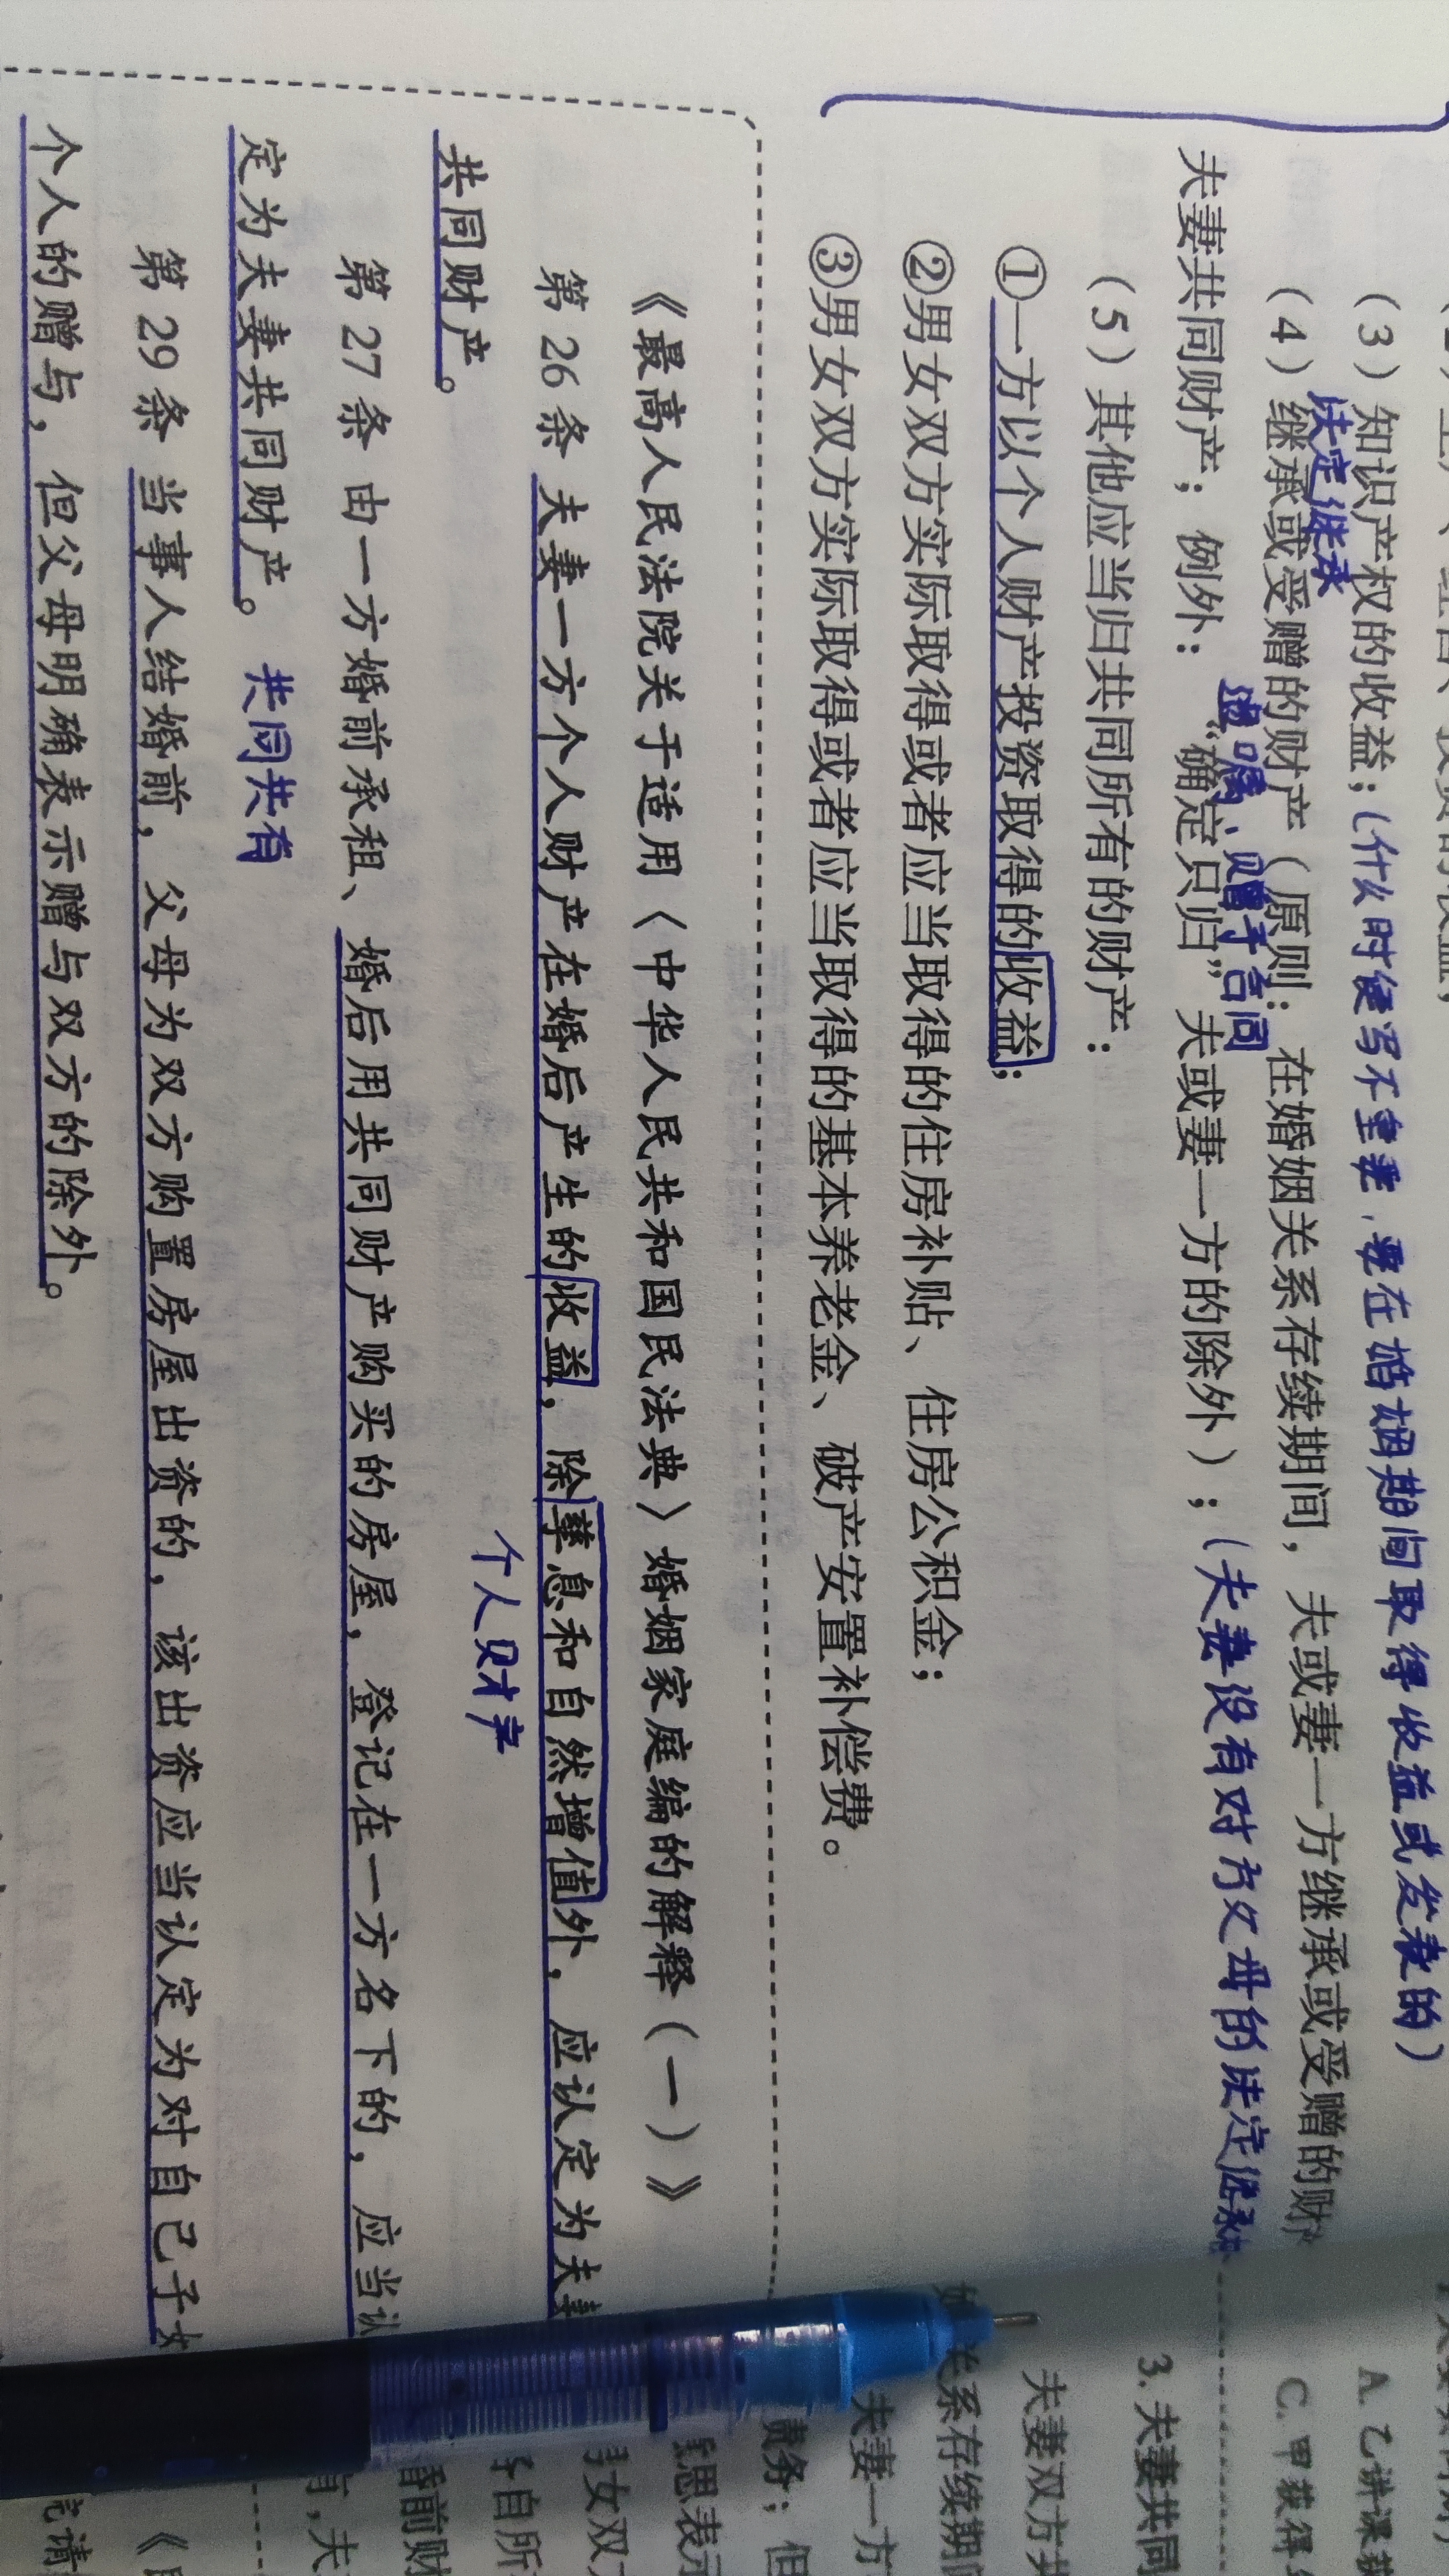 （3）知识产权的收益；（什么时候写不重要，要在婚姻期间取得收益或发表的）
法定继承
（4）继承或受赠的财产（原则：在婚姻关系存续期间，夫或妻一方继承或受赠的财
遗嘱、赠予合同
夫妻共同财产；例外：“确定只归”夫或妻一方的除外）；（夫妻没有对方父母的法定继承
（5）其他应当归共同所有的财产：
①一方以个人财产投资取得的收益；
②男女双方实际取得或者应当取得的住房补贴、住房公积金；
③男女双方实际取得或者应当取得的基本养老金、破产安置补偿费。
《最高人民法院关于适用〈中华人民共和国民法典〉婚姻家庭编的解释（一）》
第 26 条 夫妻一方个人财产在婚后产生的收益，除孳息和自然增值外，应认定为夫妻
个人财产
共同财产。
第 27 条 由一方婚前承租、婚后用共同财产购买的房屋，登记在一方名下的，应当认
定为夫妻共同财产。 共同共有
第 29 条 当事人结婚前，父母为双方购置房屋出资的，该出资应当认定为对自己子女
个人的赠与，但父母明确表示赠与双方的除外。
A. 乙讲课
C. 甲获得
3. 夫妻共同
夫妻双方共
关系存续期
夫妻一方
责务；但
意思表示
男女双
自所
婚前财
有，夫